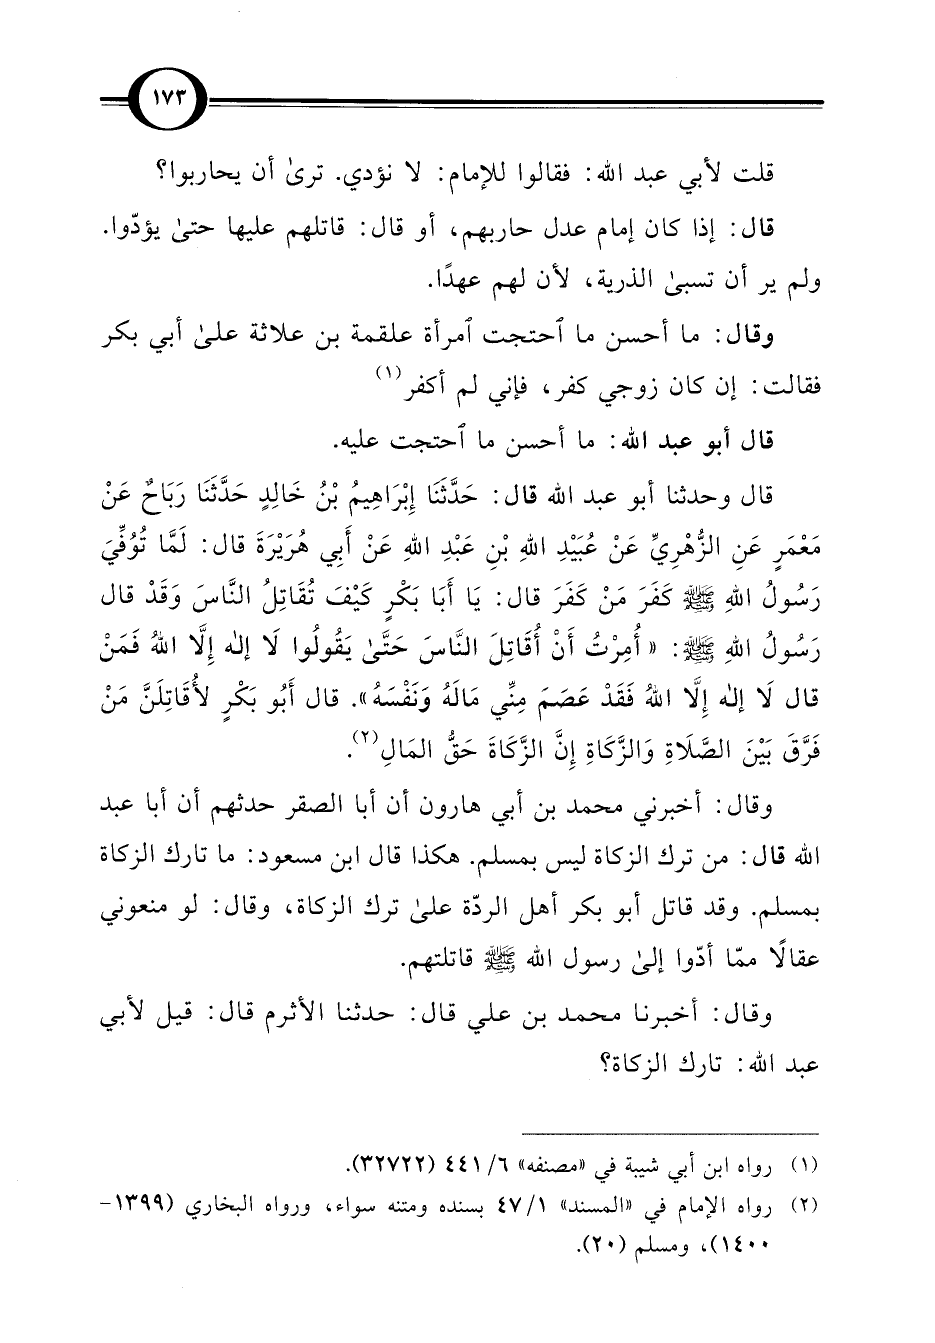 ١٧٣
قلت لأبي عبد الله: فقالوا للإمام: لا نؤدي. ترىٰ أن يحاربوا؟
قال: إذا كان إمام عدل حاربهم، أو قال: قاتلهم عليها حتىٰ يؤدّوا.
ولم ير أن تسبىٰ الذرية، لأن لهم عهدًا.
وقال: ما أحسن ما ٱحتجت ٱمرأة علقمة بن علاثة علىٰ أبي بكر
فقالت: إن كان زوجي كفر، فإني لم أكفر(١)
قال أبو عبد الله: ما أحسن ما ٱحتجت عليه.
قال وحدثنا أبو عبد الله قال: حَدَّثَنَا إِبْرَاهِيمُ بْنُ خَالِدٍ حَدَّثَنَا رَبَاحٌ عَنْ
مَعْمَرٍ عَنِ الزُّهْرِيِّ عَنْ عُبَيْدِ اللهِ بْنِ عَبْدِ اللهِ عَنْ أَبِي هُرَيْرَةَ قال: لَمَّا تُوُفِّيَ
رَسُولُ اللهِ ﷺ كَفَرَ مَنْ كَفَرَ قال: يَا أَبَا بَكْرٍ كَيْفَ تُقَاتِلُ النَّاسَ وَقَدْ قال
رَسُولُ اللهِ ﷺ: «أُمِرْتُ أَنْ أُقَاتِلَ النَّاسَ حَتَّىٰ يَقُولُوا لَا إِلٰه إِلَّا اللهُ فَمَنْ
قال لَا إِلٰه إِلَّا اللهُ فَقَدْ عَصَمَ مِنِّي مَالَهُ وَنَفْسَهُ». قال أَبُو بَكْرٍ لأُقَاتِلَنَّ مَنْ
فَرَّقَ بَيْنَ الصَّلَاةِ وَالزَّكَاةِ إِنَّ الزَّكَاةَ حَقُّ المَالِ(٢).
وقال: أخبرني محمد بن أبي هارون أن أبا الصقر حدثهم أن أبا عبد
الله قال: من ترك الزكاة ليس بمسلم. هكذا قال ابن مسعود: ما تارك الزكاة
بمسلم. وقد قاتل أبو بكر أهل الردّة علىٰ ترك الزكاة، وقال: لو منعوني
عقالًا ممّا أدّوا إلىٰ رسول الله ﷺ قاتلتهم.
وقال: أخبرنا محمد بن علي قال: حدثنا الأثرم قال: قيل لأبي
عبد الله: تارك الزكاة؟
(١) رواه ابن أبي شيبة في «مصنفه» ٦/ ٤٤١ (٣٢٧٢٢).
(٢) رواه الإمام في «المسند» ١/ ٤٧ بسنده ومتنه سواء، ورواه البخاري (١٣٩٩-
١٤٠٠)، ومسلم (٢٠).